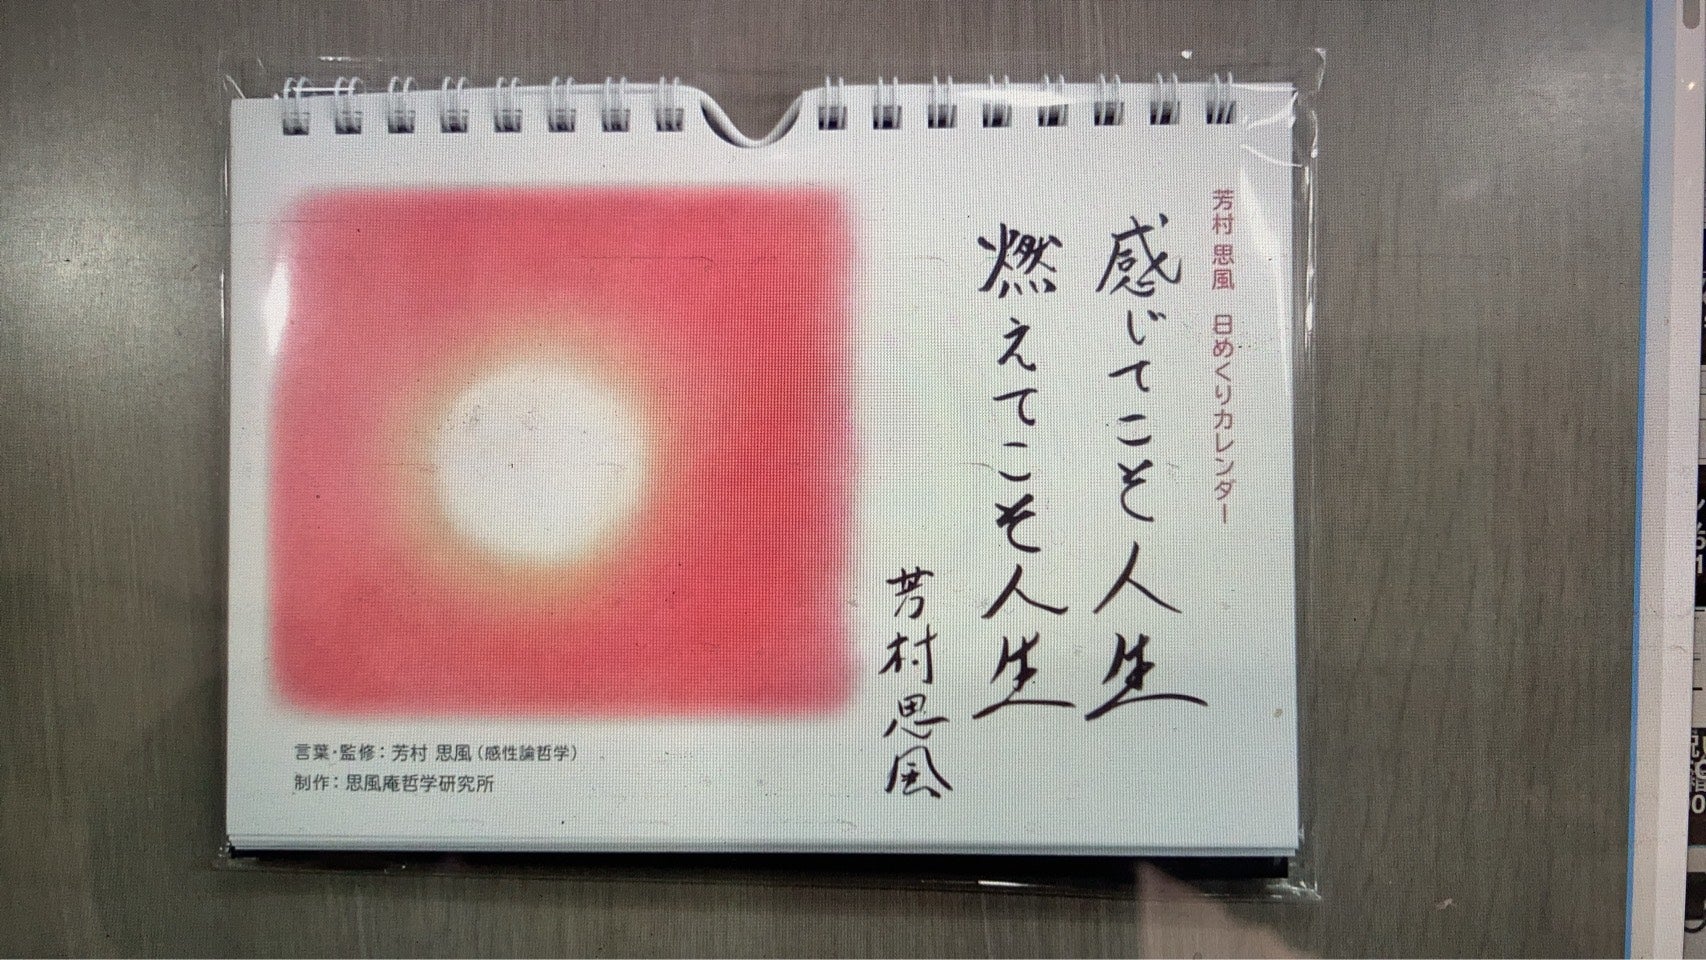 芳村 思風 日めくりカレンダー
感じてこそ人生
燃えてこそ人生
芳村思風
言葉・監修：芳村 思風（感性論哲学）
制作：思風庵哲学研究所